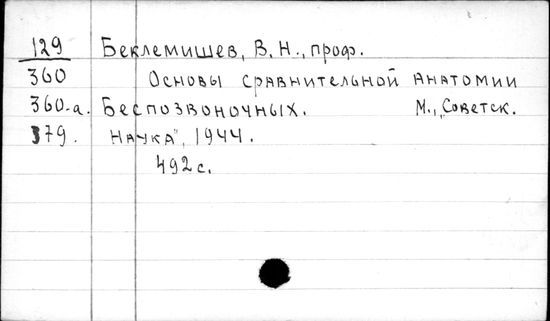 129 Беклемишев, В. Н., проф.
360 Основы сравнительной анатомии
360-а. беспозвоночных. М., „Советск.
379. наука", 1944.
492 с.